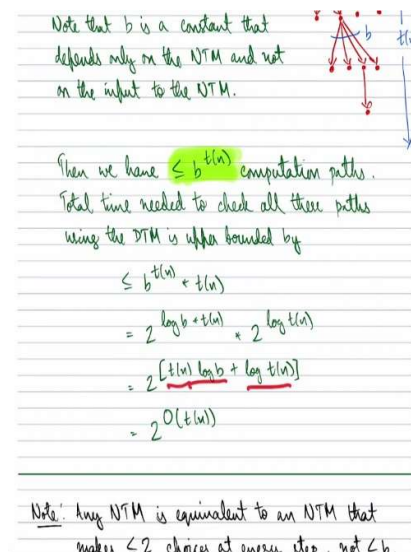 Note that b is a constant that
b
t(n)
depends only on the NTM and not
on the input to the NTM.
Then we have ≤ b^t(n) computation paths.
Total time needed to check all these paths
using the DTM is upper bounded by
≤ b^t(n) * t(n)
= 2^log b * t(n) * 2^log t(n)
= 2^[t(n) log b + log t(n)]
= 2^O(t(n))
Note: Any NTM is equivalent to an NTM that
makes ≤2 choices at every step, not ≤b